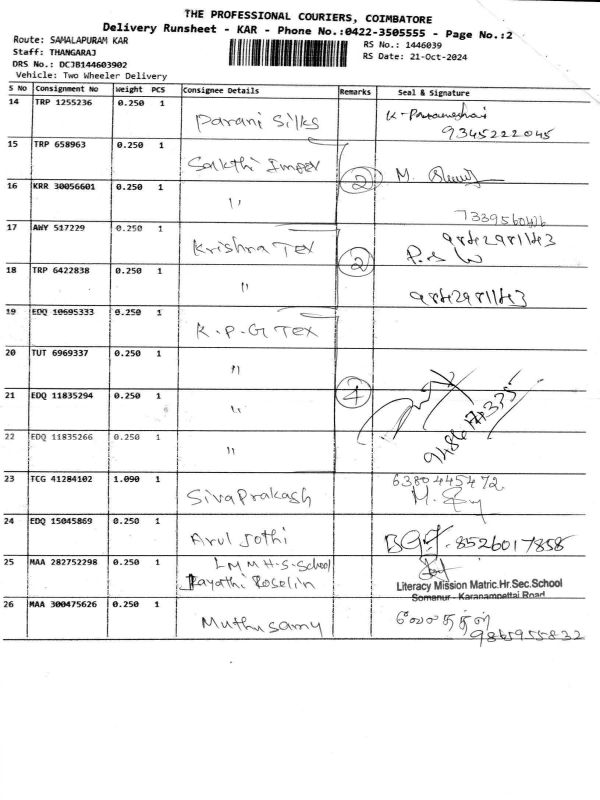 THE PROFESSIONAL COURIERS, COIMBATORE
Delivery Runsheet - KAR - Phone No.:0422-3505555 - Page No.:2
Route: SAMALAPURAM KAR
Staff: THANGARAJ
DRS No.: DCJB144603902
Vehicle: Two Wheeler Delivery
RS No.: 1446039
RS Date: 21-Oct-2024
S No Consignment No Weight PCS Consignee Details Remarks Seal & Signature
14 TRP 1255236 0.250 1 Parani Silks 9345222045
15 TRP 658963 0.250 1 Sakthi Impex 2 M.
16 KRR 30056601 0.250 1 " 7339560426
17 AWY 517229 0.250 1 Krishna TEX 2 9842981143
18 TRP 6422838 0.250 1 " 9842981143
19 EDQ 10695333 0.250 1 K.P.G TEX
20 TUT 6969337 0.250 1 "
21 EDQ 11835294 0.250 1 " 4
22 EDQ 11835266 0.250 1 "
23 TCG 41284102 1.090 1 SivaPrakash 6380445472
24 EDQ 15045869 0.250 1 Arul Jothi 8526017858
25 MAA 282752298 0.250 1 L M M H-S-School
Roselin
Literacy Mission Matric.Hr.Sec.School
Somanur - Karanampettai Road
26 MAA 300475626 0.250 1 Muthusamy 9865955832